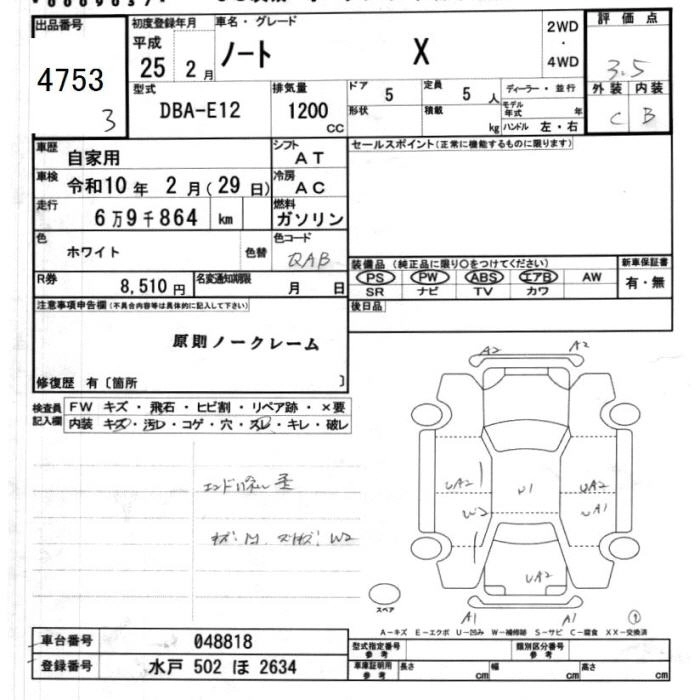 出品番号
4753
3
初度登録年月
平成
25 2月
車名・グレード
ノート X
2WD
・
4WD
評価点
3.5
外装 内装
C B
型式
DBA-E12
排気量
1200
cc
ドア
5
定員
5 人
形状
積載
kg
ディーラー・並行
モデル年式 年
ハンドル 左・右
車歴
自家用
シフト
AT
車検
令和10年 2月(29日)
冷房
AC
走行
6万9千864 km
燃料
ガソリン
色
ホワイト
色替
色コード
QAB
R券
8,510円
名変通知期限
月 日
セールスポイント(正常に機能するものに限ります)
装備品 (純正品に限り○をつけてください)
PS PW ABS エアB AW
SR ナビ TV カワ
新車保証書
有・無
後日品
注意事項申告欄(不具合内容等は具体的に記入して下さい)
原則ノークレーム
修復歴 有〔箇所 〕
検査員記入欄
FW キズ・飛石・ヒビ割・リペア跡・×要
内装 キズ・汚レ・コゲ・穴・スレ・キレ・破レ
W2
A2 A2
UA2 U1 UA2
W2 UA1
UA2
A1 A1
スペア
A−キズ E−エクボ U−凹み W−補修跡 S−サビ C−腐食 XX−交換済
車台番号
048818
登録番号
水戸 502 ほ 2634
型式指定番号
参考
類別区分番号
参考
車庫証明用
参考
長さ cm
幅 cm
高さ cm